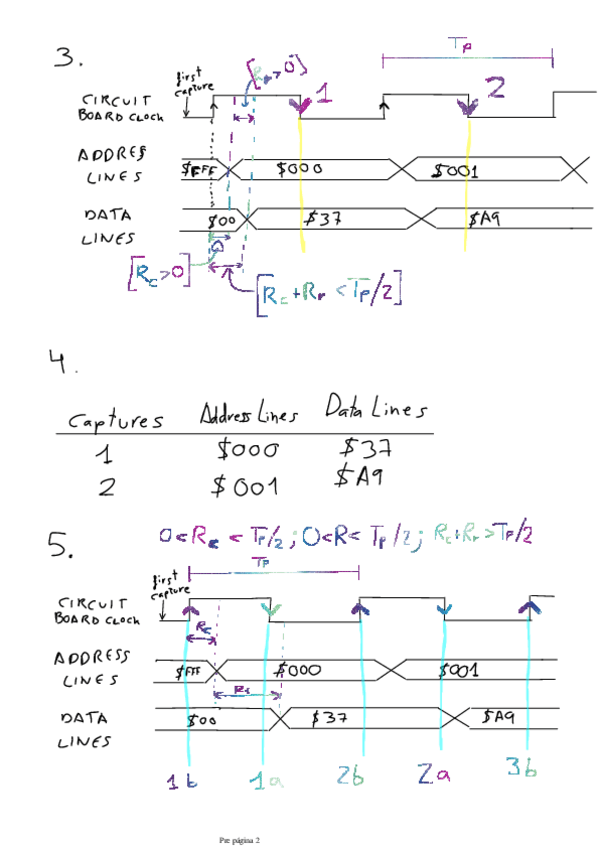 3.
first capture
[Rr>0]
Tp
1
2
CIRCUIT
BOARD CLOCK
ADDRES
LINES
$FFF
$000
$001
DATA
LINES
$00
$37
$A9
[Rc>0]
[Rc+Rr <Tp/2]
4.
Captures Address Lines Data Lines
1 $000 $37
2 $001 $A9
5.
0<Rc < Tp/2 ; 0<R< Tp/2 ; Rc+Rr >Tp/2
Tp
first capture
CIRCUIT
BOARD CLOCK
Rc
ADDRESS
LINES
$FFF
$000
$001
DATA
LINES
$00
$37
$A9
1b 1a 2b 2a 3b
Pre página 2